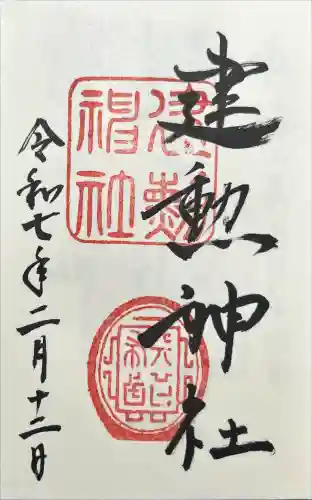 建勲神社
建勲神社
令和七年二月十二日